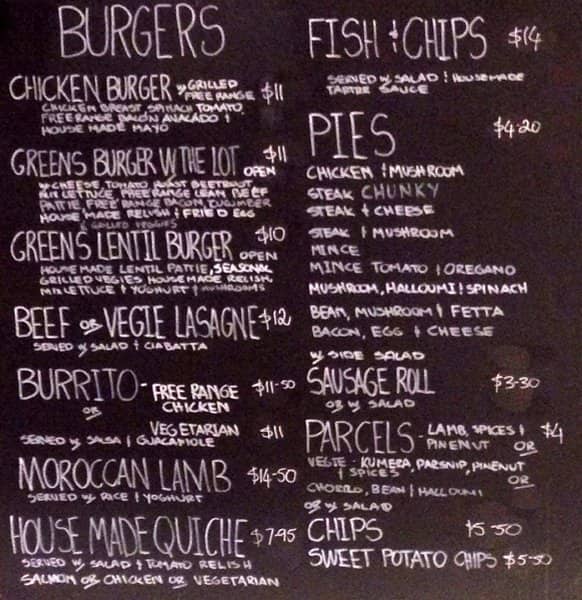 BURGERS
CHICKEN BURGER W GRILLED FREE RANGE $11
CHICKEN BREAST, SPINACH TOMATO,
FREE RANGE BACON AVACADO &
HOUSE MADE MAYO
GREENS BURGER W THE LOT OPEN $11
W CHEESE, TOMATO ROAST BEETROOT
MIX LETTUCE, FREE RANGE LEAN BEEF
PATTIE, FREE RANGE BACON, CUCUMBER
HOUSE MADE RELISH & FRIED EGG
& GRILLED VEGGIES
GREENS LENTIL BURGER OPEN $10
HOUSE MADE LENTIL PATTIE, SEASONAL
GRILLED VEGIES HOUSE MADE RELISH,
MIX LETTUCE & YOGHURT & MUSHROOMS
BEEF OR VEGIE LASAGNE $12
SERVED W SALAD & CIABATTA
BURRITO - FREE RANGE CHICKEN $11-50
OR
VEGETARIAN $11
SERVED W SALSA & GUACAMOLE
MOROCCAN LAMB $14-50
SERVED W RICE & YOGHURT
HOUSE MADE QUICHE $7-95
SERVED W SALAD & TOMATO RELISH
SALMON OR CHICKEN OR VEGETARIAN
FISH & CHIPS $14
SERVED W SALAD & HOUSEMADE
TARTRE SAUCE
PIES $4-20
CHICKEN & MUSHROOM
STEAK CHUNKY
STEAK & CHEESE
STEAK & MUSHROOM
MINCE
MINCE TOMATO & OREGANO
MUSHROOM, HALLOUMI & SPINACH
BEAN, MUSHROOM & FETTA
BACON, EGG & CHEESE
W SIDE SALAD
SAUSAGE ROLL $3-30
OR W SALAD
PARCELS - LAMB, SPICES & $4
PINENUT OR
VEGIE - KUMERA, PARSNIP, PINENUT
& SPICES OR
CHORIZO, BEAN & HALLOUMI
OR W SALAD
CHIPS $5-50
SWEET POTATO CHIPS $5-50